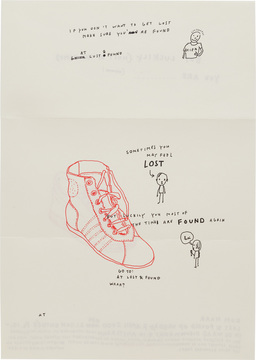 IF YOU DON'T WANT TO GET LOST
MAKE SURE YOU CAN BE FOUND
AT
LOST & FOUND
SOMETIMES YOU
MAY FEEL
LOST
BUT LUCKILY YOU MOST OF
THE TIME ARE FOUND AGAIN
GO TO:
AT LOST & FOUND